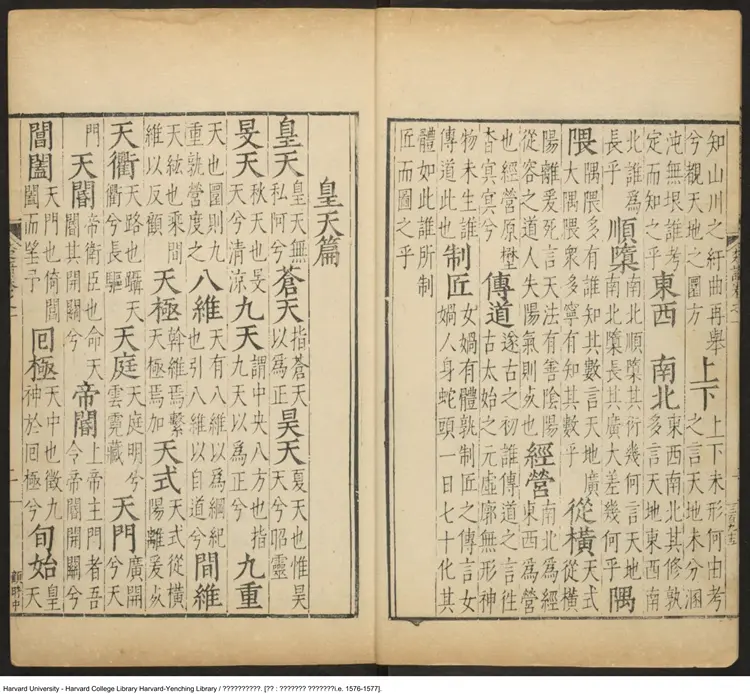 知山川之紆曲再舉兮觀天地之圜方 上下 上下未形何由考之言天地未分溷
沌無垠誰考定而知之乎 東西 南北 東西南北其修孰多言天地東西南
北誰為長乎 順橢 南北順橢其衍幾何言天地南北橢長其廣大差幾何乎 隅
隈 隅隈多有誰知其數言天地廣大隅隈衆多寧有知其數乎 從橫 天式從橫
陽離爰死言天法有善陰陽從容之道人失陽氣則歿也 經營 南北為經東西為營
也經營原壄杳冥冥兮 傳道 遂古之初誰傳道之言徃古太始之元虛廓無形神
物未生誰傳道此也 制匠 女媧有體孰制匠之傳言女媧人身蛇頭一日七十化其
體如此誰所制匠而圖之乎
三百九十五
皇天篇
皇天 皇天無私阿兮 蒼天 指蒼天以為正 昊天 夏天也惟昊天兮昭靈
旻天 秋天也旻天兮清涼 九天 謂中央八方也指九天以為正兮 九重
天也圜則九重孰營度之 八維 天有八維以為綱紀也引八維以自道兮 間維
天紘也乘間維以反顧 天極 斡維焉繫天極焉加 天式 天式從橫陽離爰歿
天衢 天路也躡天衢兮長驅 天庭 天庭明兮雲霓藏 天門 廣開兮天
門 天閽 帝衛臣也命天閽其開關兮 帝閽 上帝主門者吾令帝閽開關兮
閶闔 天門也倚閶闔而望予 囘極 天中也徵九神於囘極兮 旬始 皇天
顧時中
Harvard University - Harvard College Library Harvard-Yenching Library / ??????????. [?? : ??????? ???????i.e. 1576-1577].